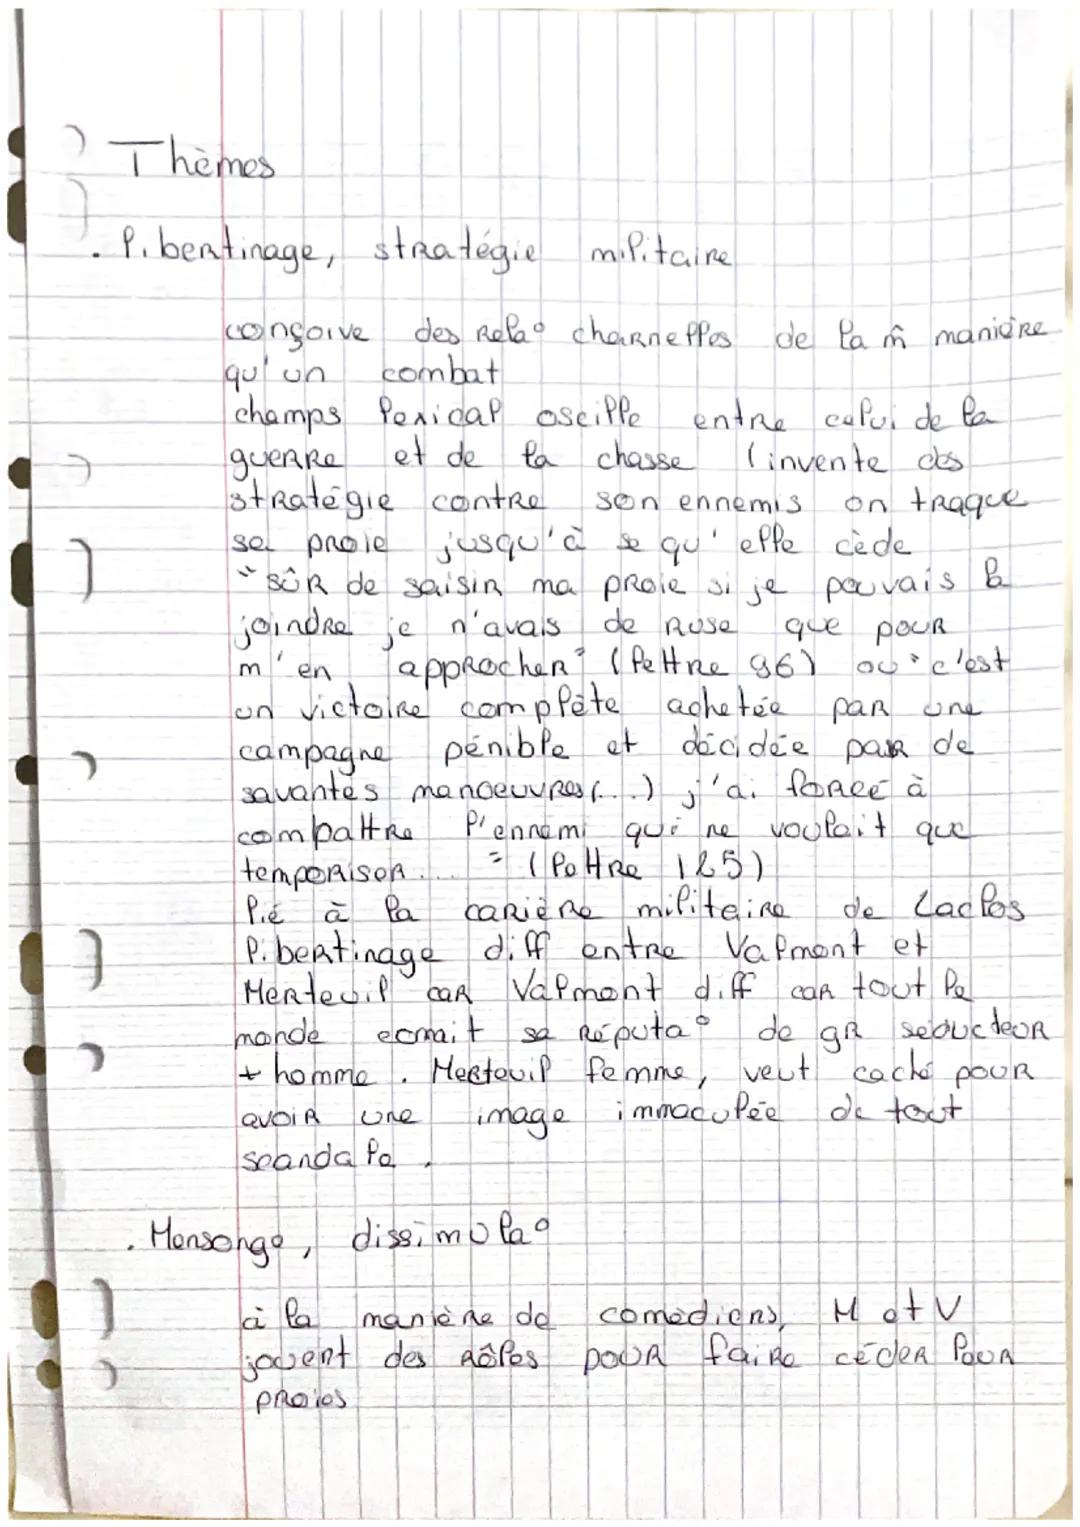 Thèmes
. libertinage, stratégie militaire
conçoive des rela° charnelles de la m̂ manière
qu'un combat
champs lexical oscille entre celui de la
guerre et de la chasse (invente des
stratégie contre son ennemis on traque
sa proie jusqu'à se qu'elle cède
"sûr de saisir ma proie si je pouvais la
joindre je n'avais de ruse que pour
m'en approcher" (lettre 96) ou "c'est
un victoire complète achetée par une
campagne pénible et décidée par de
savantes manoeuvres (...) j'ai forcé à
combattre l'ennemi qui ne voulait que
temporiser...." (lettre 125)
lié à la carière militaire de Laclos
libertinage diff entre Valmont et
Merteuil car Valmont diff car tout le
monde connait sa réputa° de gr séducteur
+ homme. Merteuil femme, veut caché pour
avoir une image immaculée de tout
scandale.
. Mensonge, dissimula°
à la manière de comédiens, M et V
jouent des rôles pour faire céder leur
proies